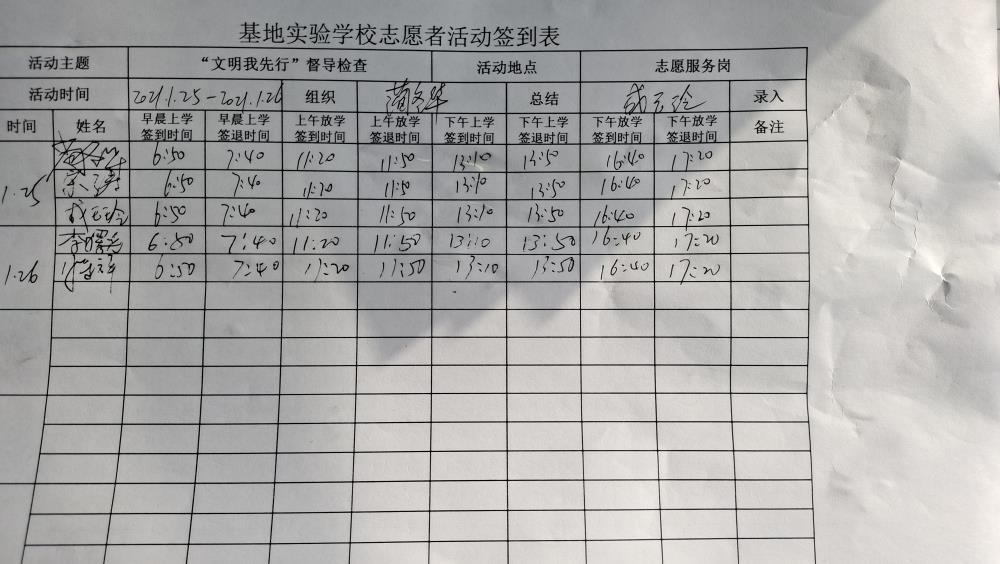 基地实验学校志愿者活动签到表
活动主题 “文明我先行”督导检查 活动地点 志愿服务岗
活动时间 2021.1.25-2021.1.26 组织 总结 录入
时间 姓名 早晨上学签到时间 早晨上学签退时间 上午放学签到时间 上午放学签退时间 下午上学签到时间 下午上学签退时间 下午放学签到时间 下午放学签退时间 备注
6:50 7:40 11:20 11:50 13:10 13:50 16:40 17:20
1.25 6:50 7:40 11:20 11:50 13:10 13:50 16:40 17:20
6:50 7:40 11:20 11:50 13:10 13:50 16:40 17:20
6:50 7:40 11:20 11:50 13:10 13:50 16:40 17:20
1.26 6:50 7:40 11:20 11:50 13:10 13:50 16:40 17:20